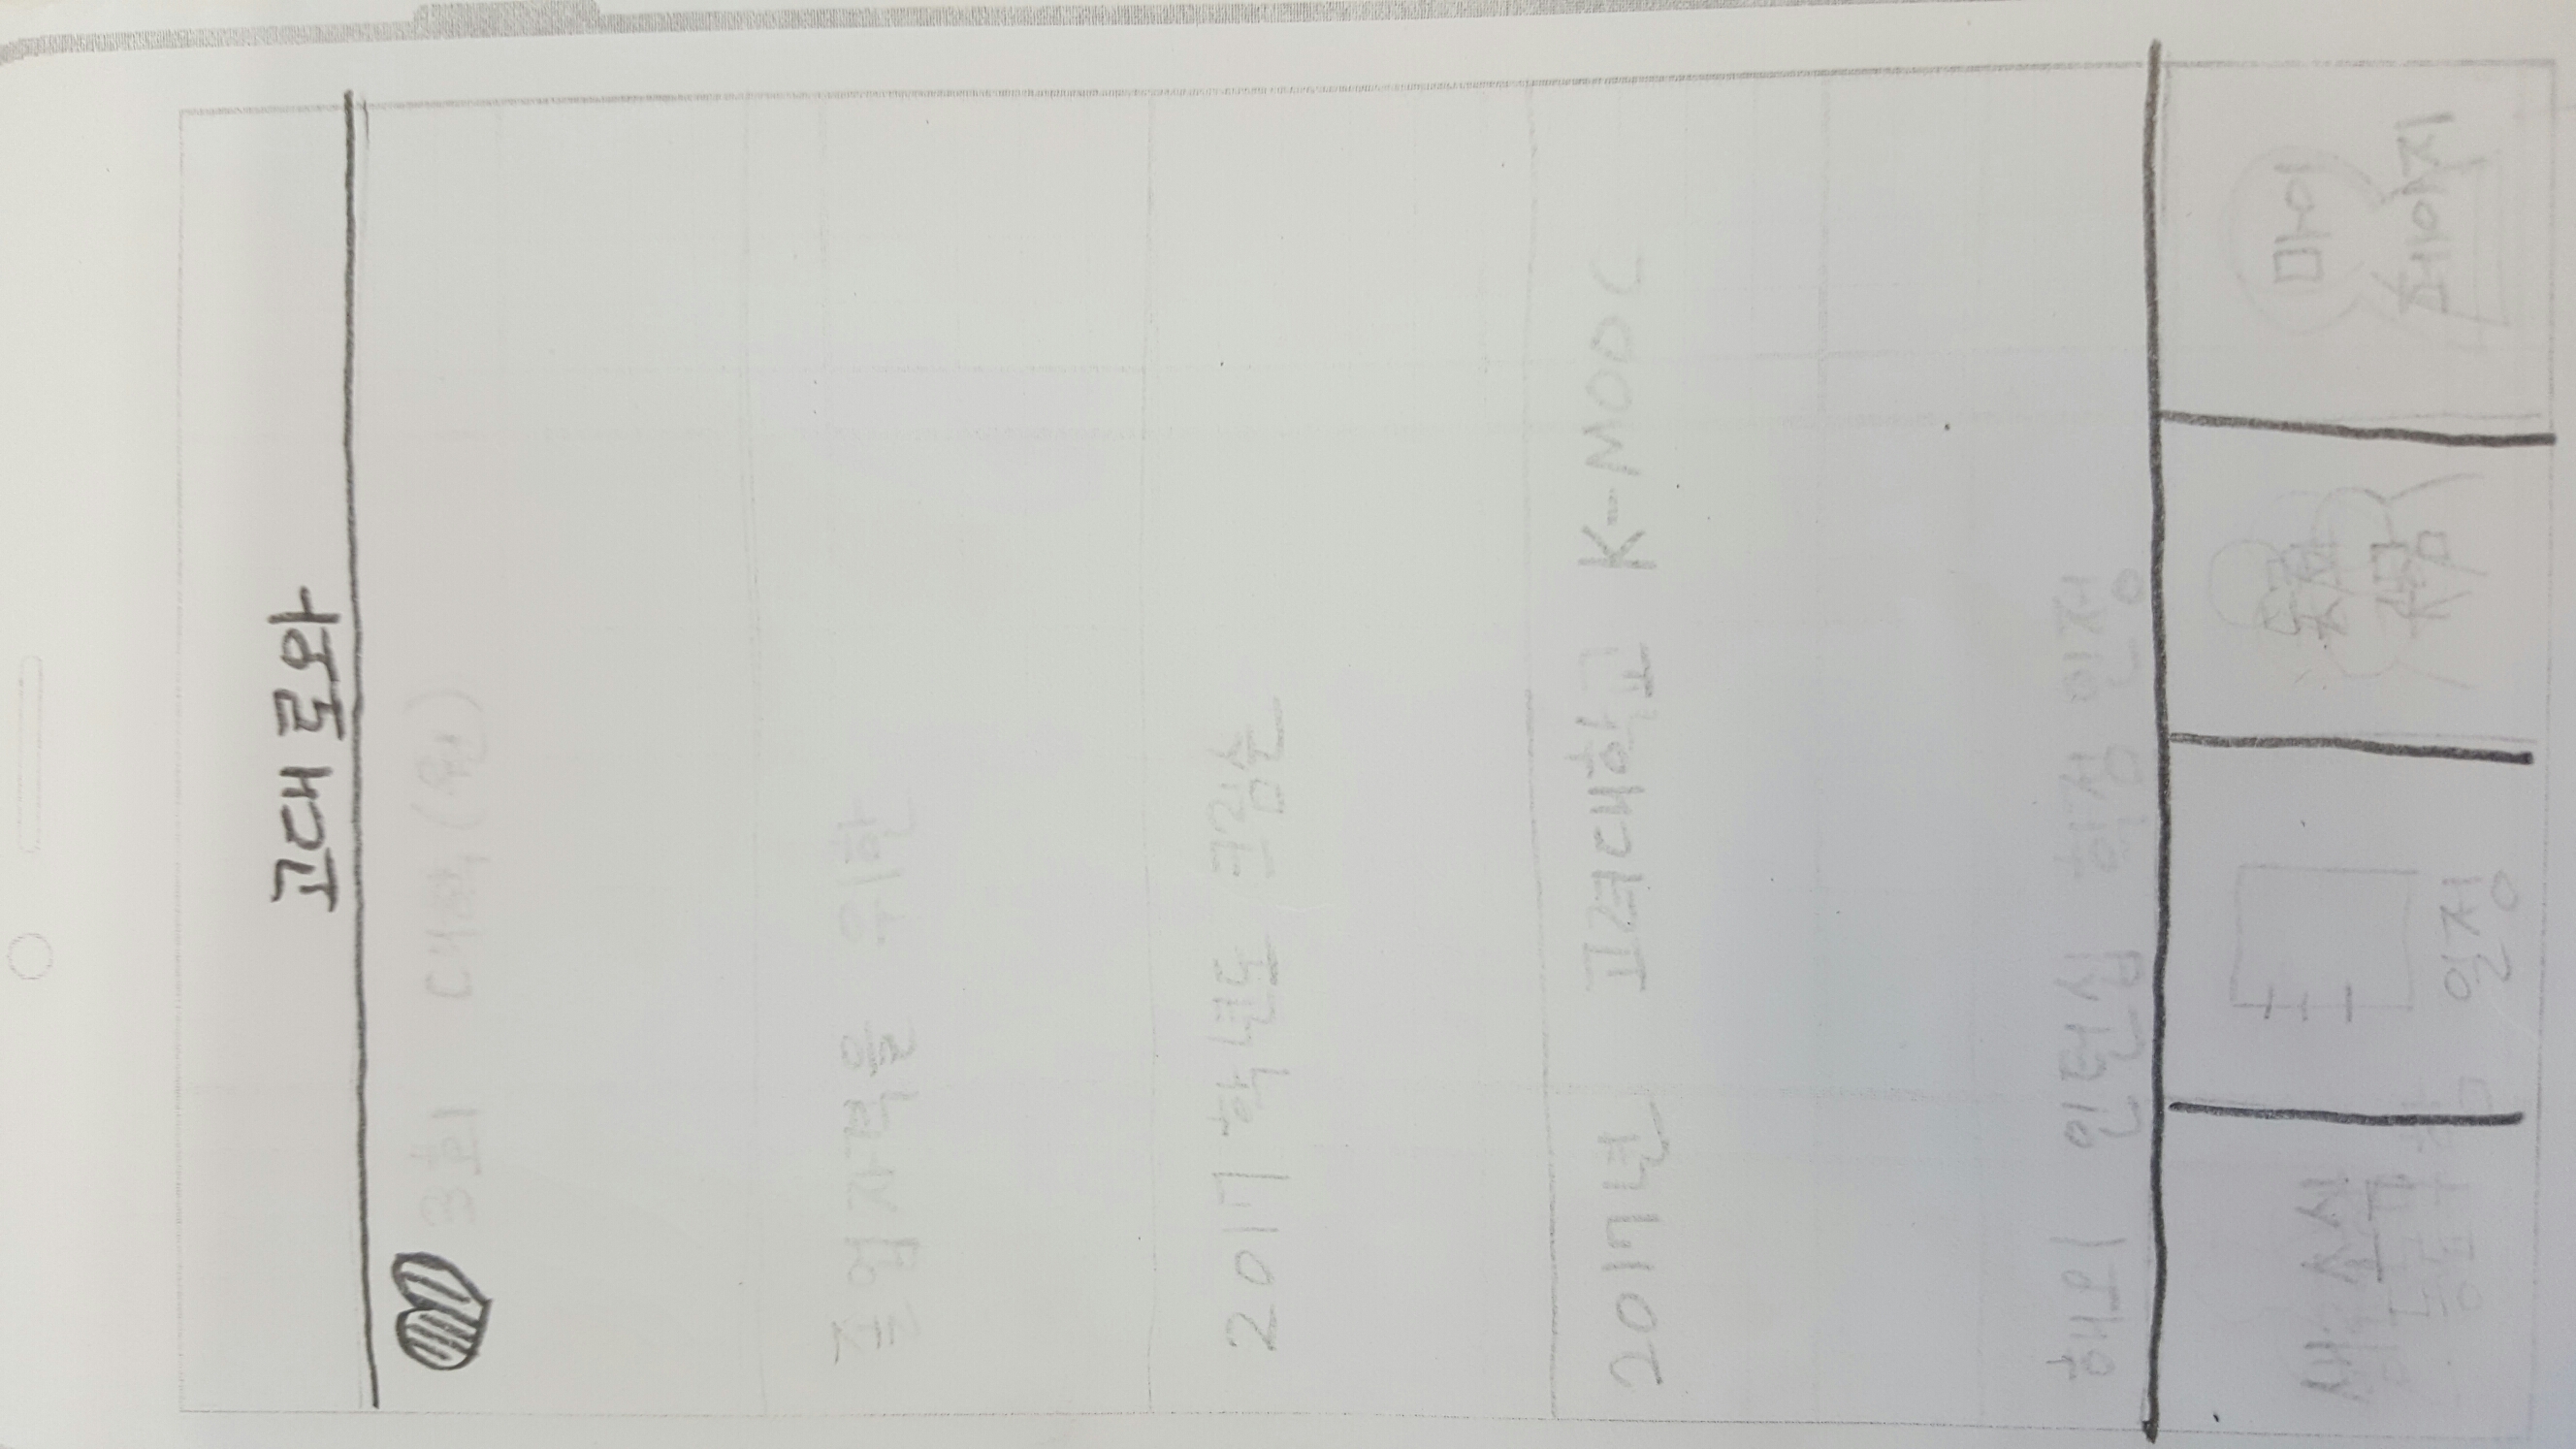 고대로와
3회 대학(원)
졸업자격을 위한
2017학년도 크림슨
2017년 고려대학교 K-MOOC
해외 인턴십 학점 인정
새소식
일정
마이
페이지